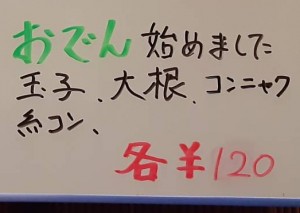 おでん 始めました
玉子、大根、コンニャク
糸コン、
各¥120